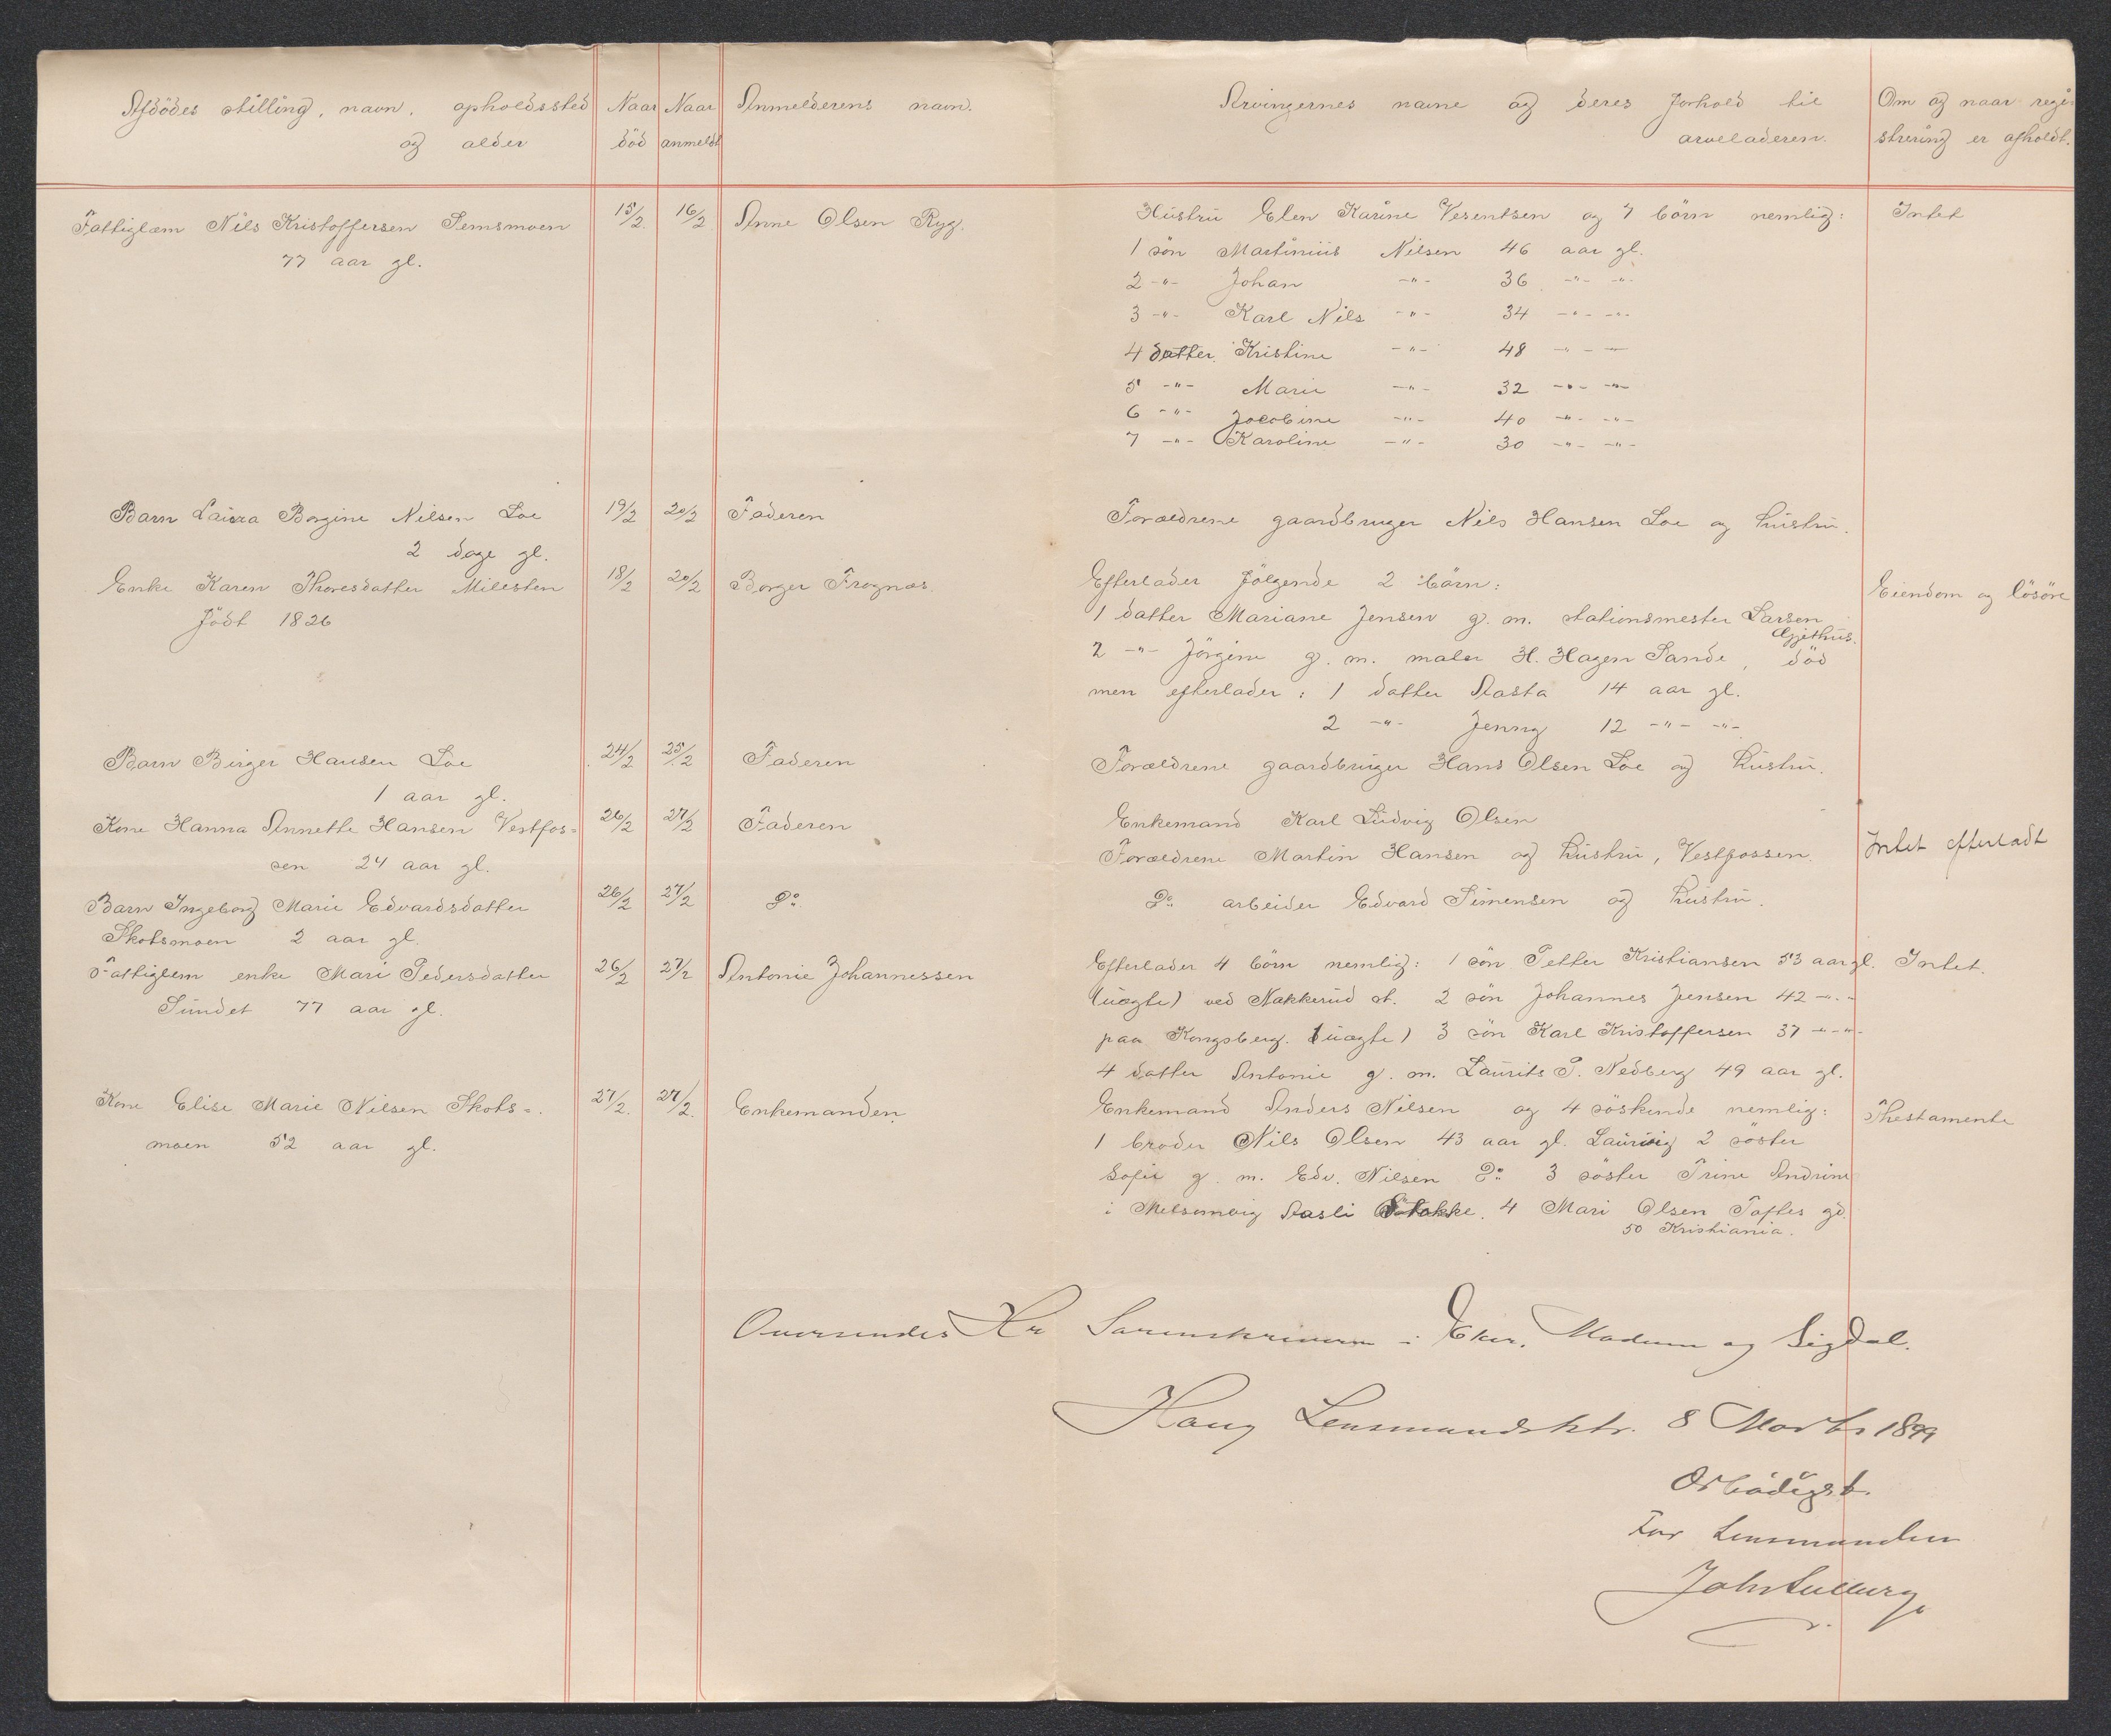 Afdödes stilling, navn, opholdssted og alder
Naar död
Naar anmeldt
Anmelderens navn.
Arvingernes navne og deres forhold til arveladeren.
Om og naar registrering er afholdt.
Fattiglæm Nils Kristoffersen Semsmoen 15/2 16/2 Anne Olsen Ryg. Hustru Elen Karine Vesentsen og 7 börn nemlig: Intet
77 aar gl. 1 sön Martinius Nilsen 46 aar gl.
2 -"- Johan -"- 36 -"- -"-
3 -"- Karl Nils -"- 34 -"- -"-
4 datter Kristine -"- 48 -"- -"-
5 -"- Marie -"- 32 -"- -"-
6 -"- Jacobine -"- 40 -"- -"-
7 -"- Karoline -"- 30 -"- -"-
Barn Laura Borgine Nilsen Loe 19/2 20/2 Faderen Forældrene gaardbruger Nils Hansen Loe og hustru.
2 dage gl.
Enke Karen Thoresdatter Milesten 18/2 20/2 Borger Frognæs. Efterlader følgende 2 börn: Eiendom og lösöre
födt 1826 1 datter Mariane Jensen g. m. stationsmester Larsen
Gjethus.
2 -"- Jörgine g. m. maler H. Hagen Sande, död
men efterlader: 1 datter Aasta 14 aar gl.
2 -"- Jenny 12 -"- -"-
Barn Birger Hansen Loe 24/2 25/2 Faderen Forældrene gaardbruger Hans Olsen Loe og hustru.
1 aar gl.
Kone Hanna Annette Hansen Vestfos= 26/2 27/2 Faderen Enkemand Karl Ludvig Olsen
sen 24 aar gl. Forældrene Martin Hansen og hustru, Vestfossen. Intet efterladt
Barn Ingeborg Marie Edvardsdatter 26/2 27/2 Do. Do. arbeider Edvard Simensen og hustru.
Skotsmoen 2 aar gl.
Fattiglem enke Mari Pedersdatter 26/2 27/2 Antonie Johannessen Efterlader 4 börn nemlig: 1 sön Petter Kristiansen 53 aar gl. Intet.
Sundet 77 aar gl. (uægte) ved Nakkerud st. 2 sön Johannes Jensen 42 -"-
paa Kongsberg. (uægte) 3 sön Karl Kristoffersen 37 -"- -"-
4 datter Antonie g. m. Laurits P. Nedberg 49 aar gl.
Kone Elise Marie Nilsen Skots= 27/2. 27/2. Enkemanden. Enkemand Anders Nilsen og 4 söskende nemlig: Thestamente
moen 52 aar gl. 1 broder Nils Olsen 43 aar gl. Laurvig 2 söster
Sofie g. m. Edv. Nilsen Do. 3 söster Trine Andrine
i Melsomvig Aasli Stokke. 4 Mari Olsen Toftes gd.
50 Kristiania.
Oversendes Hr Sorenskriveren i Eker, Modum og Sigdal.
Haug Lensmandsktr. 8 Marts 1899
Ærbødigst
For Lensmanden